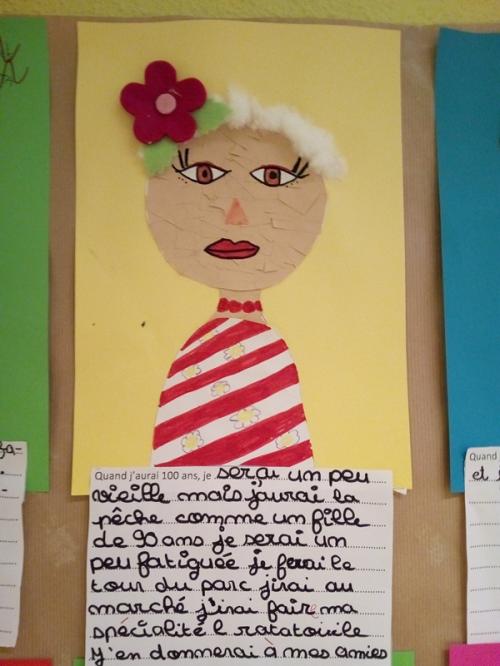 Quand j'aurai 100 ans, je serai un peu
vieille mais jaurai la
pêche comme un fille
de 90 ans je serai un
peu fatiguée je ferai le
tour du parc jirai au
marché j'irai faire ma
spécialité l ratatouile
Y'en donnerai à mes amies
Quand
et j